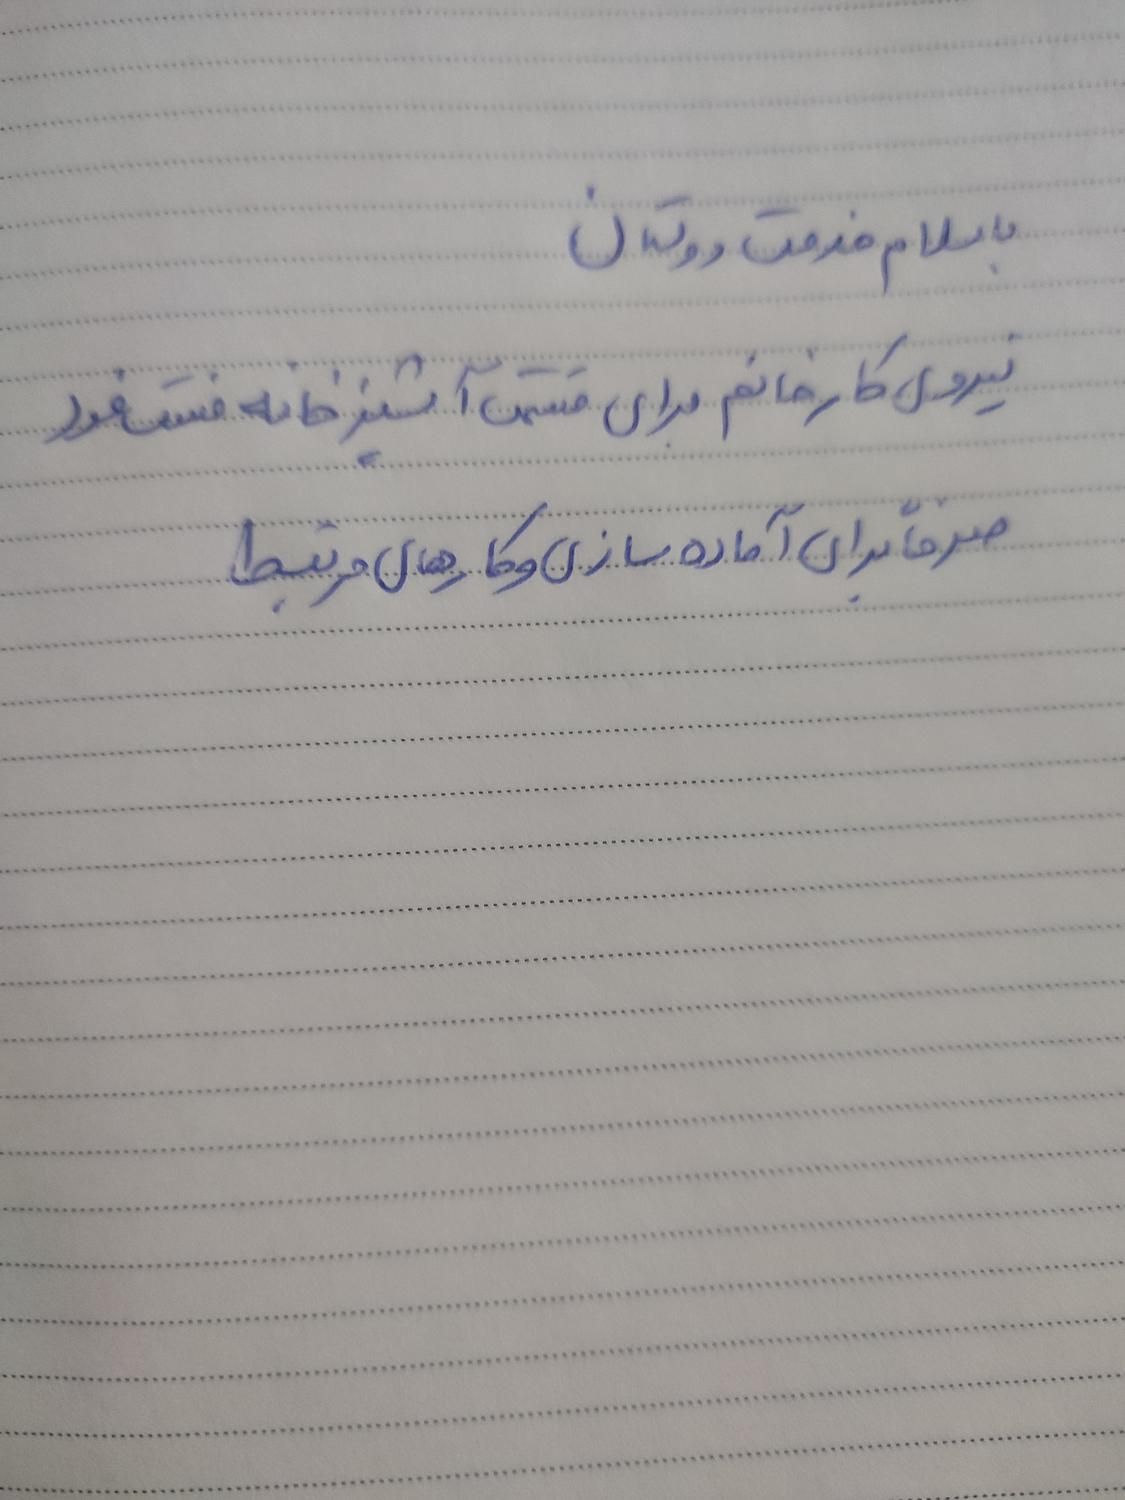 با سلام خدمت دوستان
نیروی کار خانم برای قسمت آشپزخانه فست فود
صرفاً برای آماده سازی و کارهای مرتبط